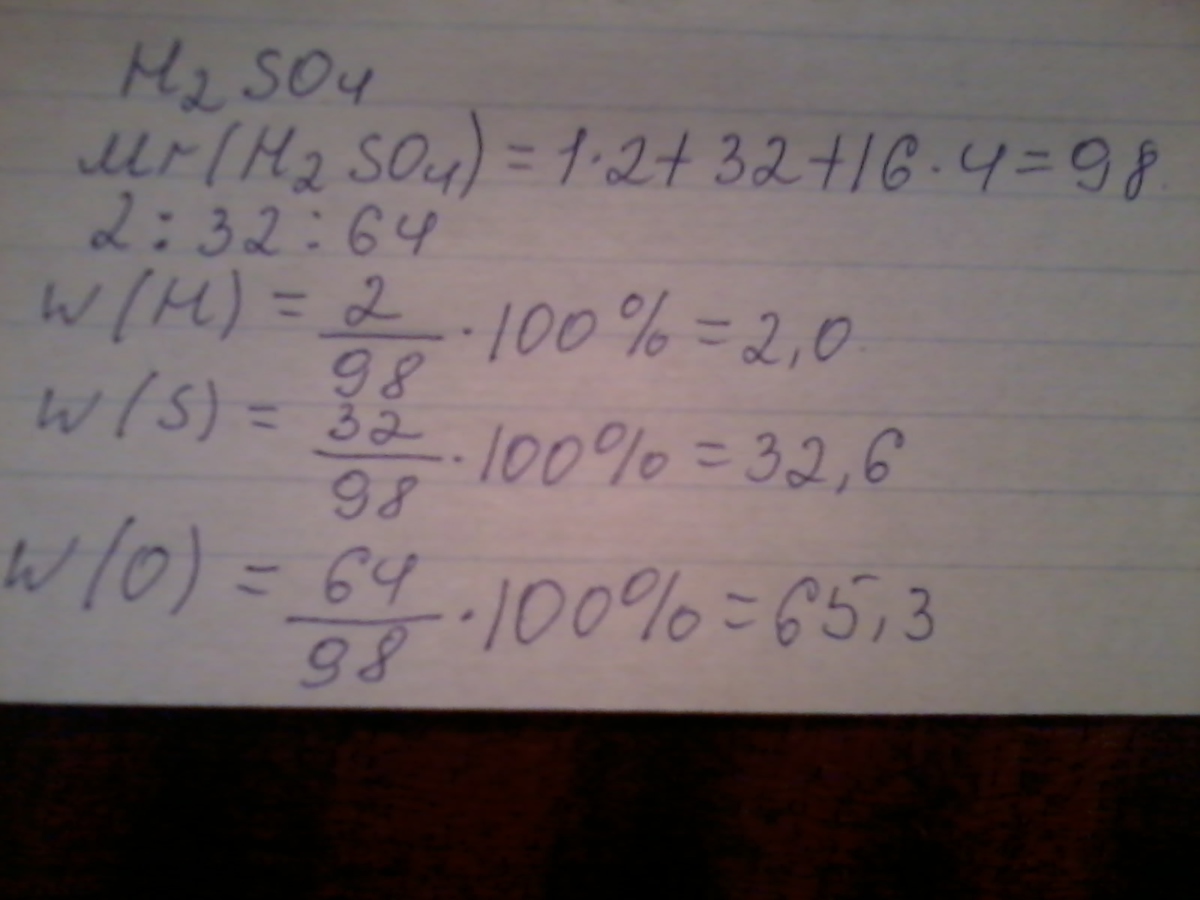 H₂SO₄
Mr(H₂SO₄) = 1·2+32+16·4=98
2:32:64
W(H) = 2/98 · 100% = 2,0
W(S) = 32/98 · 100% = 32,6
W(O) = 64/98 · 100% = 65,3